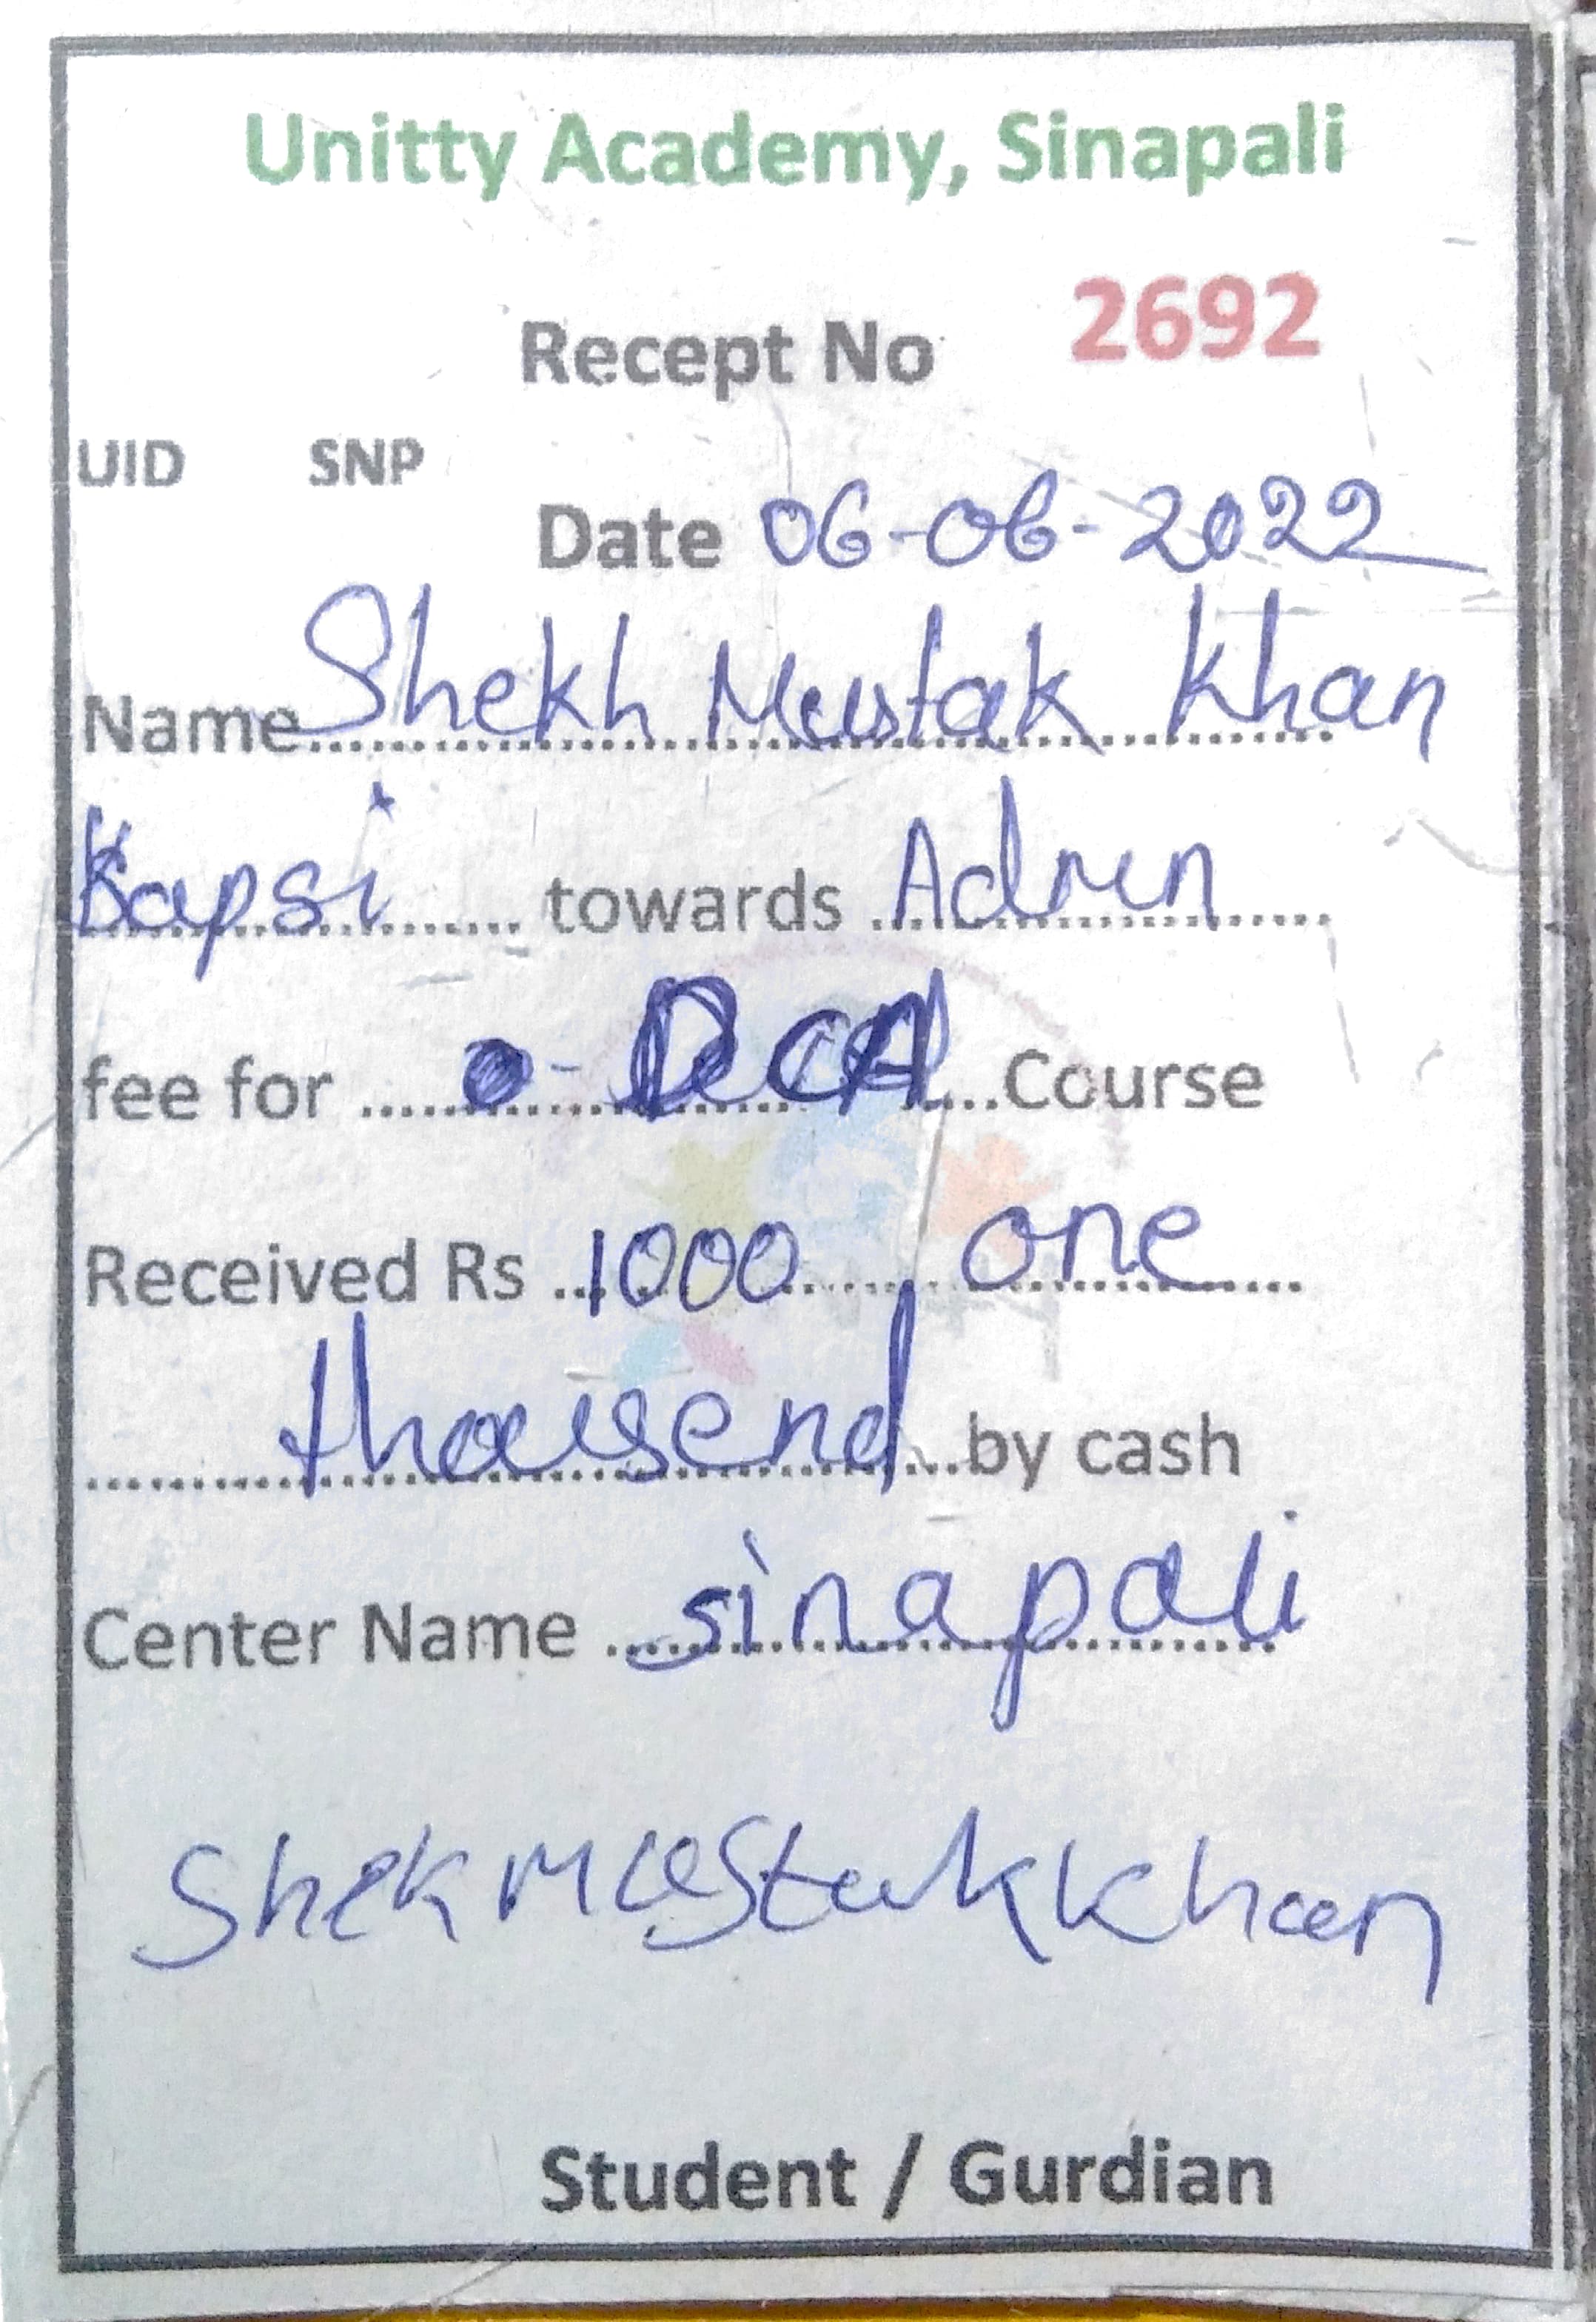 Unitty Academy, Sinapali
Recept No 2692
UID SNP
Date 06-06-2022
Name Shekh Mustak Khan
Kapsi towards Admn
fee for DCA Course
Received Rs 1000 one
thousend by cash
Center Name sinapali
Shek Mustak Khan
Student / Gurdian